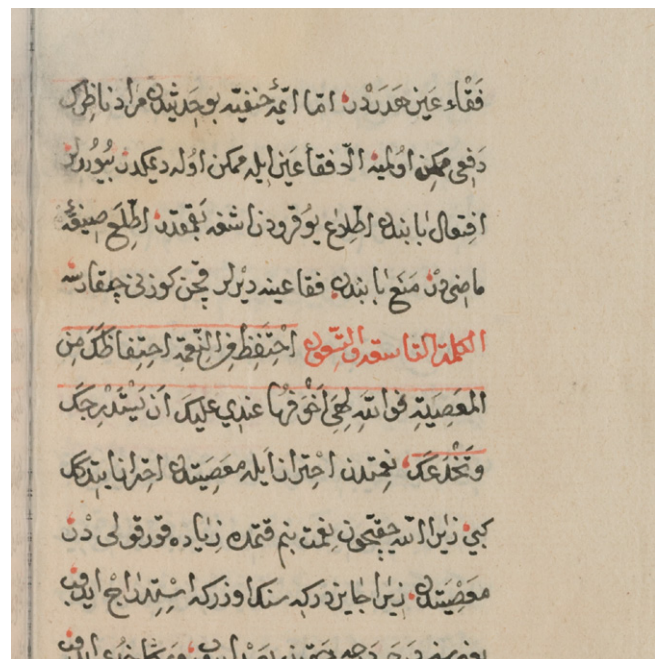 فَقْاء عَين هَدَردْن امّا ائمۀ حنفيّه بو حديثدن مراد ناظرك
دَفعى ممكن اولميه الّا فقأ عَين ايله ممكن اوله ديمكدن بيُوررلر
افتعال بابنده اطّلاع يوقرودن اشغه بَقمقدن اطّلَع صيغۀ
ماضى دن مَنَع بابنده فقا عينه ديرلر قچن كوزنى چيقارسه
الكلمة التاسعة والتسعون احتَفِظ فى النّعمة احتِفاظَكَ مِن
المعَصِيَةِ فواللّهِ لَهِىَ اَخْوَفُهُا عندِي عليكَ اَن تَستَدْرِجَكَ
وَتَخْدَعَكَ نعمتدن احتراز ايله معصيتدن احتراز ايتدكك
كبى زيرا اللّه حقيچون نِعمت بنم قتمده زياده قورقولى دُن
معَصْيَتدن زيرا جايزدركه سنك اوزركه اسْتِدْراجْ ايدوب